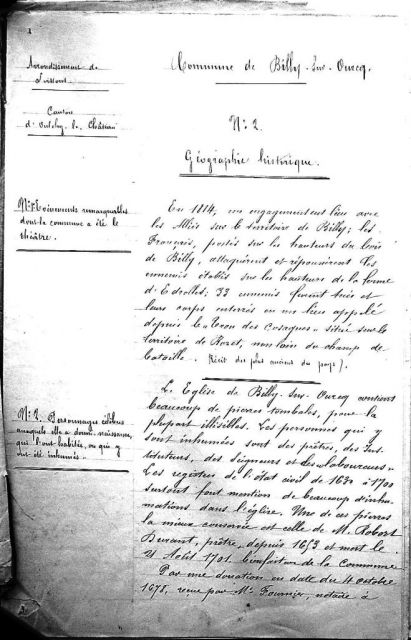 1
Arrondissement de
Soissons
Canton
d'Oulchy-le-Château
Commune de Billy-Sur-Ourcq.
N: 2.
Géographie historique.
N: 1 Evénements remarquables
dont la commune a été le
théâtre.
En 1814, un engagement eut lieu avec
les Alliés sur le territoire de Billy; les
Français, postés sur les hauteurs du bois
de Billy, attaquèrent et repoussèrent les
ennemis établis sur les hauteurs de la ferme
d'Edrolles; 33 ennemis furent tués et
leurs corps enterrés en un lieu appelé
depuis le "Trou des Cosaques" situé sur le
territoire de Rozet, non loin du champ de
bataille. (Récit des plus anciens du pays).
N: 2 Personnages célèbres
auxquels elle a donné naissance,
qui l'ont habitée, ou qui y
ont été inhumés.
L'Eglise de Billy-Sur-Ourcq contient
beaucoup de pierres tombales, pour la
plupart illisibles. Les personnes qui y
sont inhumées sont des prêtres, des
des seigneurs et des laboureurs.
Les registres de l'état civil de 1630 à 1700
surtout font mention de beaucoup d'inhu-
mations dans l'église. Une de ces pierres
la mieux conservée est celle de M. Robert
prêtre, depuis 1673 et mort le
21 Août 1701, bienfaiteur de la Commune
Par une donation en date du 4 octobre
1678, reçue par Me Fournier, notaire à